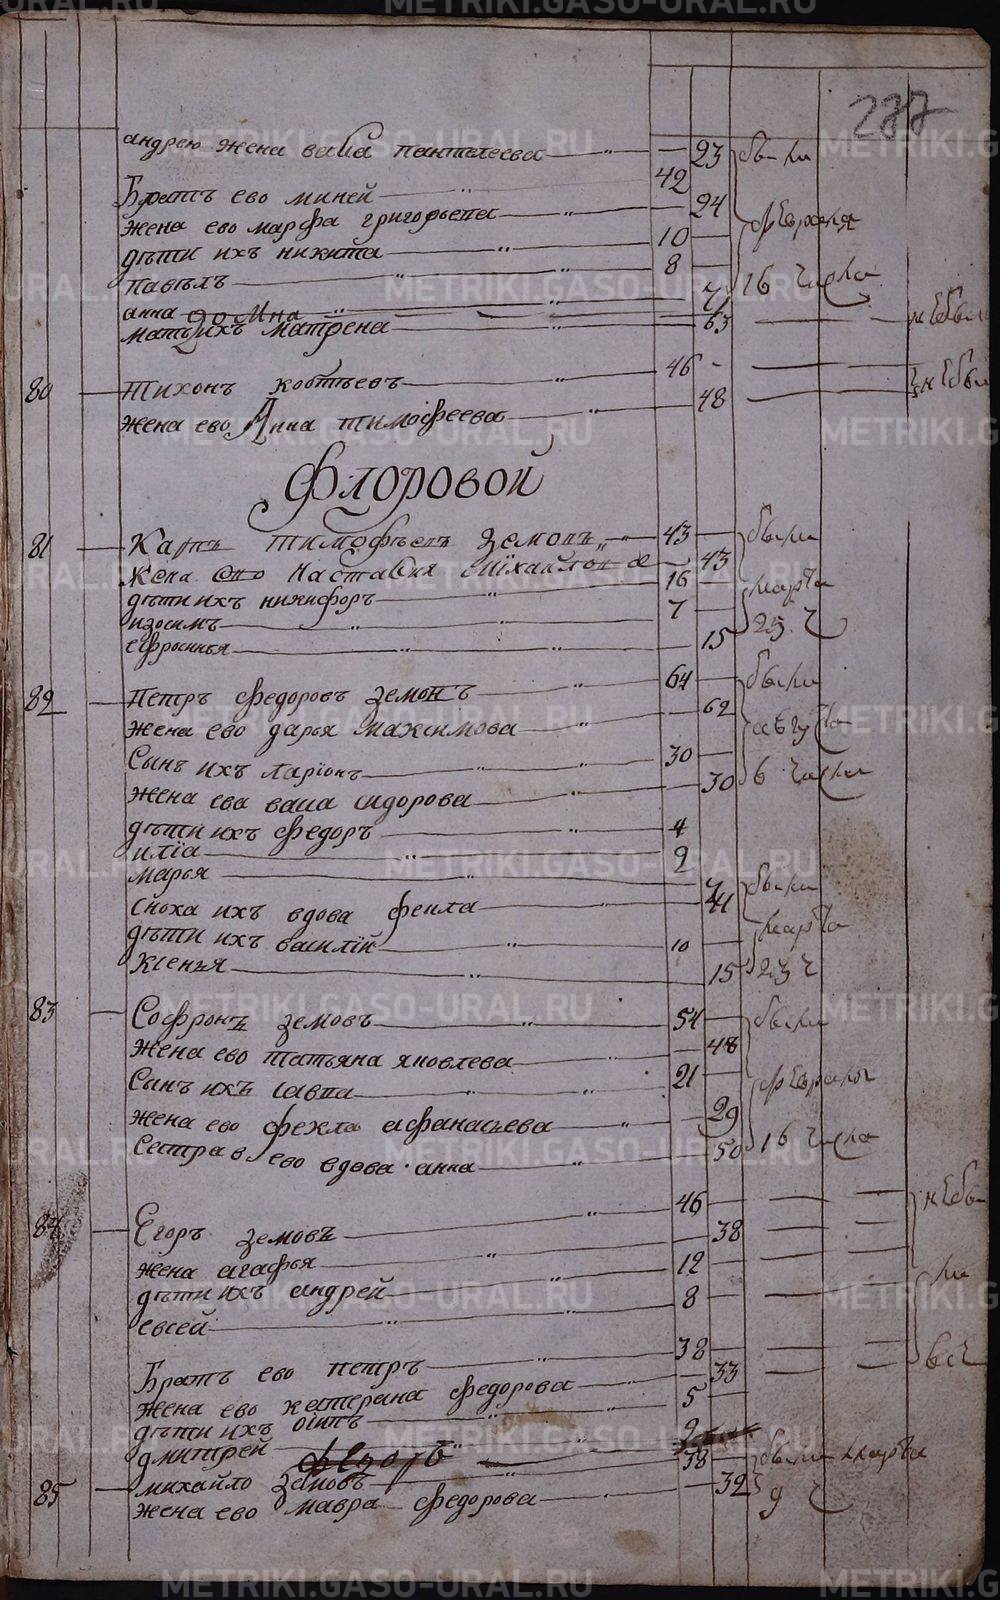 287
андрею жена васа пантелеева 23 были
Братъ ево миней 42
жена ево марфа григорьева 24 февраля
дѣти ихъ никита 10
павѣлъ 8 16 числа
анна домна 7
мать ихъ матрена 63 небыли
80 Тихонъ 46
жена ево Анна тимофеева 48 небыли
Флоровой
81 Карпъ тимофѣевъ Земовъ 43 были
Жена ево Настасия Михайлова 43
дѣти ихъ никифоръ 16 марта
изосимъ 7
ефросинья 15 23 ч
82 Петръ федоровъ земовъ 64 были
жена ево дарья максимова 62 августа
Сынъ ихъ ларіонъ 30
жена ева васа сидорова 30 6 числа
дѣти ихъ федоръ 4
иліа 2
марья 7 были
сноха ихъ вдова фекла 41
дѣти ихъ василій 10 марта
ксенья 15 23 ч
83 Софронъ земовъ 54 были
жена ево татьяна яковлева 48
Сынъ ихъ савва 21 февраля
жена ево фекла афанасьева 29
Сестра ево вдова анна 50 16 числа
84 Егоръ земовъ 46 небы
жена агафья 38
дѣти ихъ андрей 12 ли
евсей 8
Братъ ево петръ 38 всѣ
жена ево катерина федорова 33
дѣти ихъ осипъ 5
дмитрей 2
85 михайло земовъ 38 были марта
жена ево мавра федорова 32 9 ч
METRIKI.GASO-URAL.RU